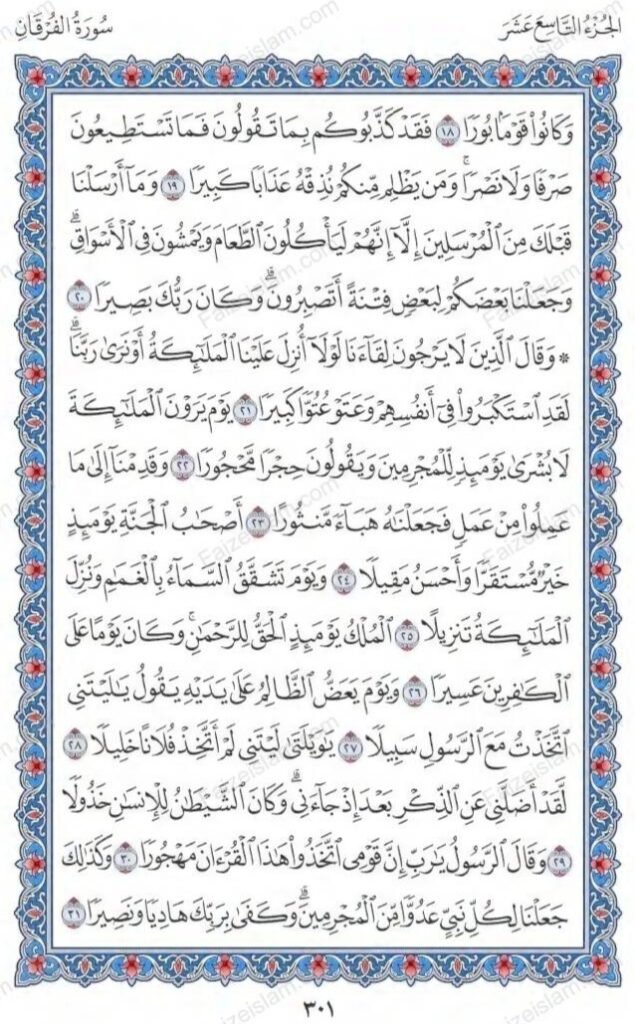 الجُزْءُ التَّاسِعَ عَشَرَ سُورَةُ الفُرْقَانِ
وَكَانُوا۟ قَوْمًۢا بُورًا ١٨ فَقَدْ كَذَّبُوكُم بِمَا تَقُولُونَ فَمَا تَسْتَطِيعُونَ
صَرْفًا وَلَا نَصْرًا ۚ وَمَن يَظْلِم مِّنكُمْ نُذِقْهُ عَذَابًا كَبِيرًا ١٩ وَمَآ أَرْسَلْنَا
قَبْلَكَ مِنَ ٱلْمُرْسَلِينَ إِلَّآ إِنَّهُمْ لَيَأْكُلُونَ ٱلطَّعَامَ وَيَمْشُونَ فِى ٱلْأَسْوَاقِ ۗ
وَجَعَلْنَا بَعْضَكُمْ لِبَعْضٍ فِتْنَةً أَتَصْبِرُونَ ۗ وَكَانَ رَبُّكَ بَصِيرًا ٢٠
۞ وَقَالَ ٱلَّذِينَ لَا يَرْجُونَ لِقَآءَنَا لَوْلَآ أُنزِلَ عَلَيْنَا ٱلْمَلَـٰٓئِكَةُ أَوْ نَرَىٰ رَبَّنَا ۗ
لَقَدِ ٱسْتَكْبَرُوا۟ فِىٓ أَنفُسِهِمْ وَعَتَوْ عُتُوًّا كَبِيرًا ٢١ يَوْمَ يَرَوْنَ ٱلْمَلَـٰٓئِكَةَ
لَا بُشْرَىٰ يَوْمَئِذٍ لِّلْمُجْرِمِينَ وَيَقُولُونَ حِجْرًا مَّحْجُورًا ٢٢ وَقَدِمْنَآ إِلَىٰ مَا
عَمِلُوا۟ مِنْ عَمَلٍ فَجَعَلْنَـٰهُ هَبَآءً مَّنثُورًا ٢٣ أَصْحَـٰبُ ٱلْجَنَّةِ يَوْمَئِذٍ
خَيْرٌ مُّسْتَقَرًّا وَأَحْسَنُ مَقِيلًا ٢٤ وَيَوْمَ تَشَقَّقُ ٱلسَّمَآءُ بِٱلْغَمَـٰمِ وَنُزِّلَ
ٱلْمَلَـٰٓئِكَةُ تَنزِيلًا ٢٥ ٱلْمُلْكُ يَوْمَئِذٍ ٱلْحَقُّ لِلرَّحْمَـٰنِ ۚ وَكَانَ يَوْمًا عَلَى
ٱلْكَـٰفِرِينَ عَسِيرًا ٢٦ وَيَوْمَ يَعَضُّ ٱلظَّالِمُ عَلَىٰ يَدَيْهِ يَقُولُ يَـٰلَيْتَنِى
ٱتَّخَذْتُ مَعَ ٱلرَّسُولِ سَبِيلًا ٢٧ يَـٰوَيْلَتَىٰ لَيْتَنِى لَمْ أَتَّخِذْ فُلَانًا خَلِيلًا ٢٨
لَّقَدْ أَضَلَّنِى عَنِ ٱلذِّكْرِ بَعْدَ إِذْ جَآءَنِى ۗ وَكَانَ ٱلشَّيْطَـٰنُ لِلْإِنسَـٰنِ خَذُولًا
٢٩ وَقَالَ ٱلرَّسُولُ يَـٰرَبِّ إِنَّ قَوْمِى ٱتَّخَذُوا۟ هَـٰذَا ٱلْقُرْءَانَ مَهْجُورًا ٣٠ وَكَذَٰلِكَ
جَعَلْنَا لِكُلِّ نَبِىٍّ عَدُوًّا مِّنَ ٱلْمُجْرِمِينَ ۗ وَكَفَىٰ بِرَبِّكَ هَادِيًا وَنَصِيرًا ٣١
٣٠١
Faizeislam.com